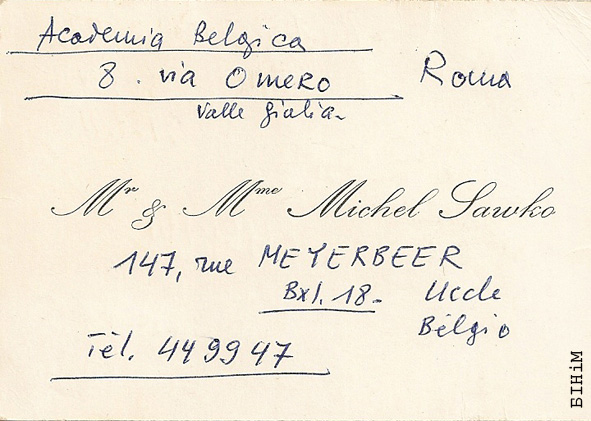 Academia Belgica
8. via Omero Roma
Valle Giulia
Mr & Mme Michel Sawko
147, rue MEYERBEER
Bxl. 18- Uccle
Bélgio
Tél. 44 99 47
БІНіМ